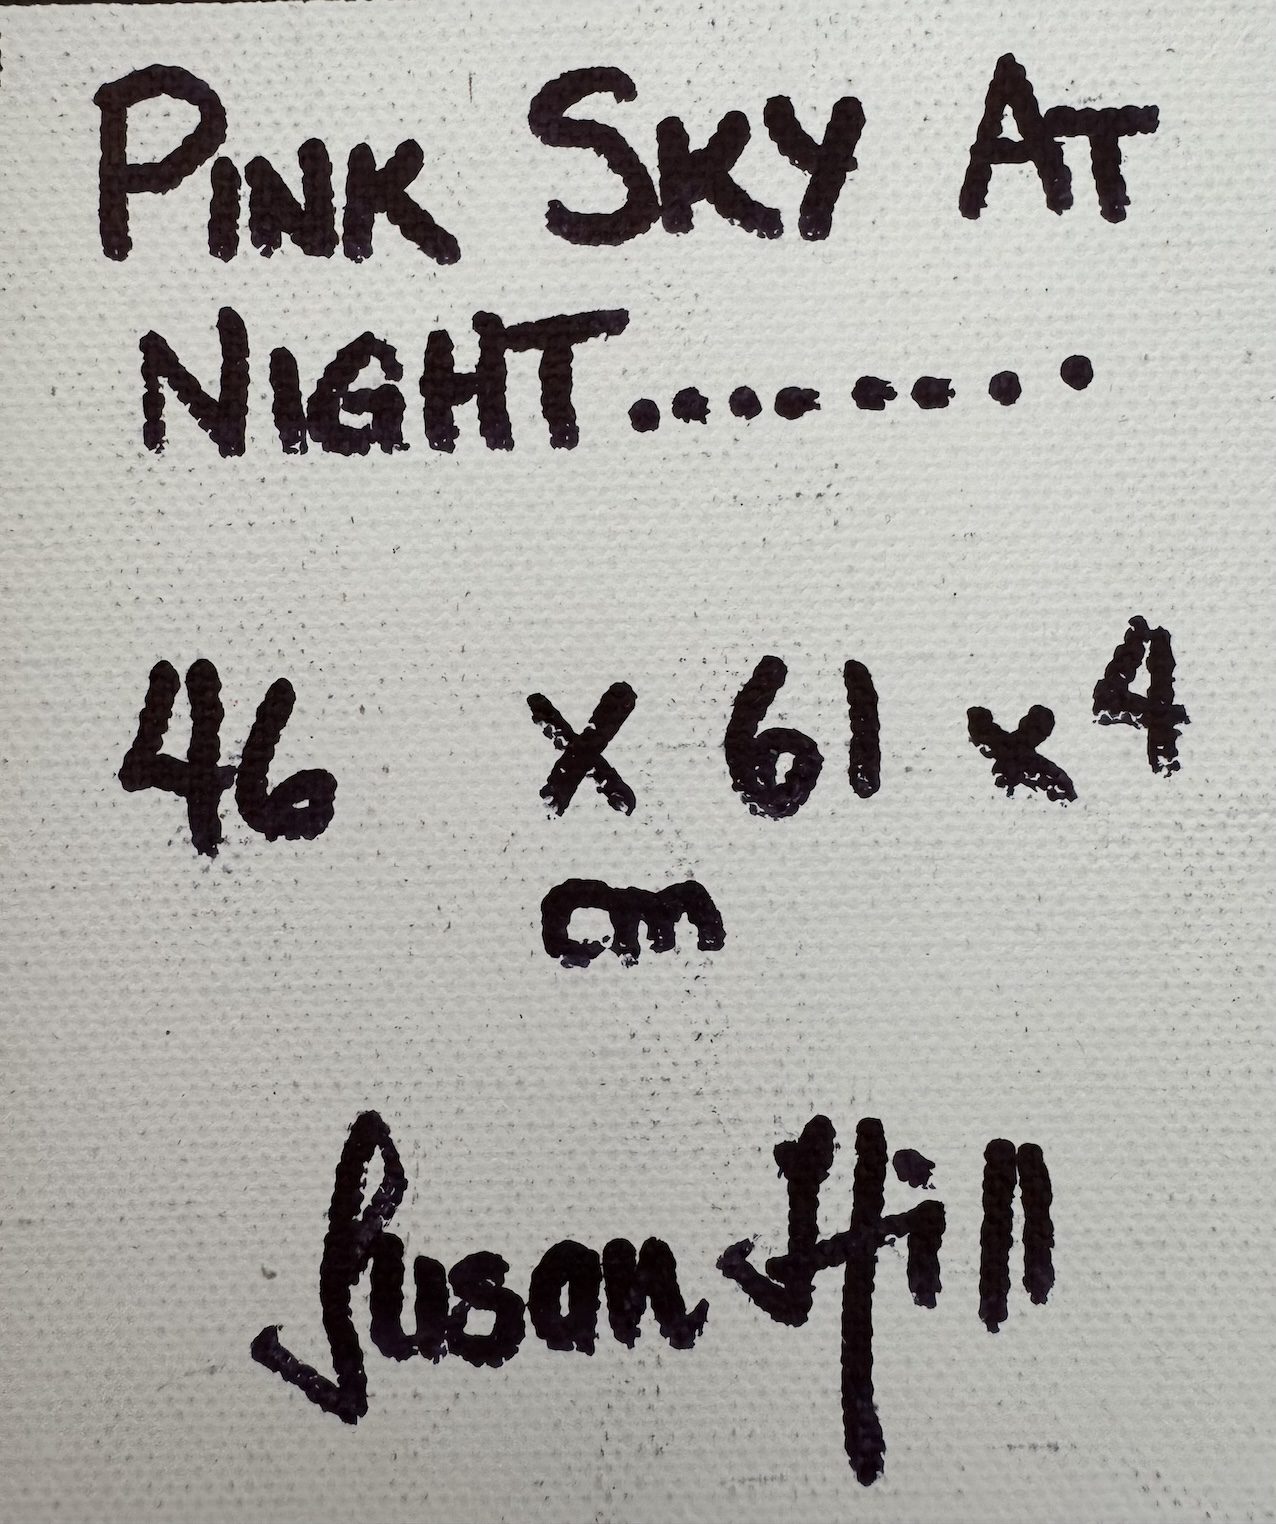 PINK SKY AT
NIGHT........
46 x 61 x 4
cm
Susan Hill